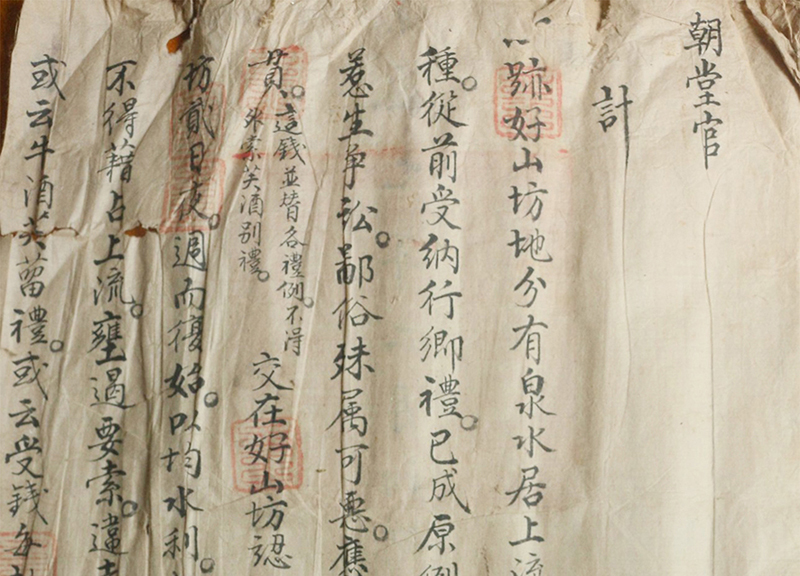 朝堂官
計
跡好山坊地分有泉水居上流
種。從前受納行鄉禮。已成原例
惹生争訟。鄙俗殊属可惡。應
貫。這錢並皆各禮例。不得
外索芙酒别禮。
交在好山坊認
坊貳日夜。週而復始。以均水利。
不得藉占上流。壅遏要索。違者
或云牛酒芙蒥禮。或云受錢